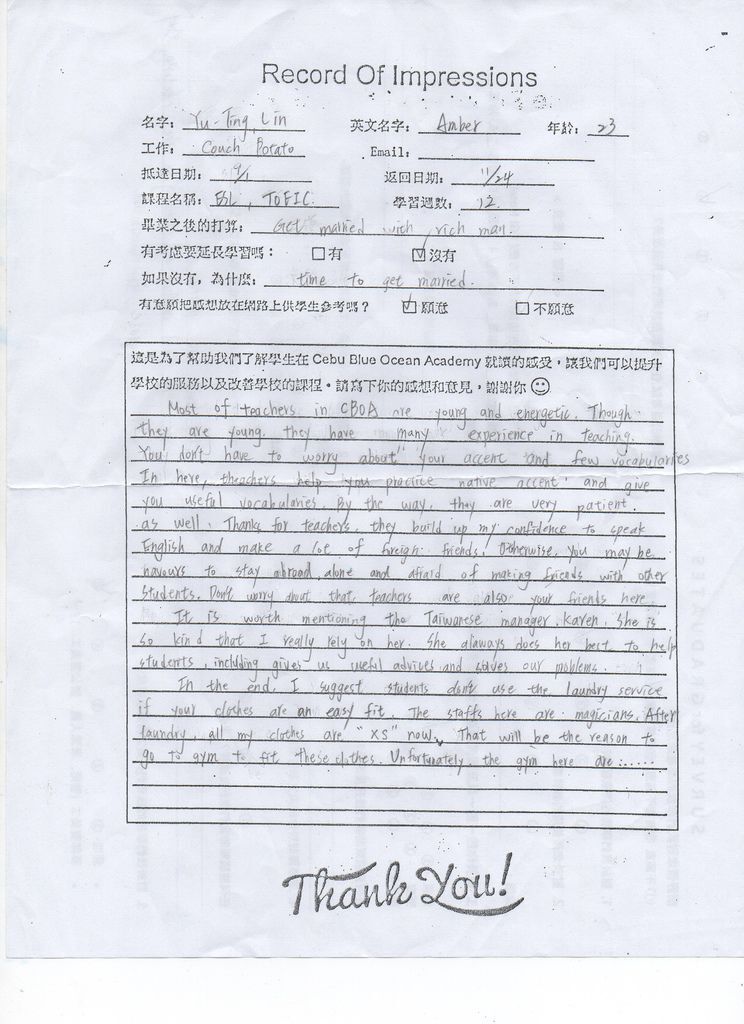 Record Of Impressions
名字: Yu-Ting Lin 英文名字: Amber 年齡: 23
工作: Couch Potato Email:
抵達日期: 9/1 返回日期: 11/24
課程名稱: ESL, TOEIC 學習週數: 12
畢業之後的打算: Get married with rich man.
有考慮要延長學習嗎: □有 ☑沒有
如果沒有, 為什麼: time to get married.
有意願把感想放在網路上供學生參考嗎? ☑願意 □不願意
這是為了幫助我們了解學生在 Cebu Blue Ocean Academy 就讀的感受, 讓我們可以提升
學校的服務以及改善學校的課程。請寫下你的感想和意見, 謝謝你 ☺
Most of teachers in CBOA are young and energetic. Though
they are young, they have many experience in teaching.
You don't have to worry about your accent and few vocabularies
In here, theachers help you practice native accent and give
you useful vocabularies. By the way, they are very patient
as well. Thanks for teachers, they build up my confidence to speak
English and make a lot of foreign friends. Otherwise, you may be
to stay abroad alone and afraid of making friends with other
students. Don't worry about that, teachers are also your friends here.
It is worth mentioning the Taiwanese manager, Karen. She is
so kind that I really rely on her. She alaways does her best to help
students, including gives us useful advices and solves our problems.
In the end, I suggest students don't use the laundry service
if your clothes are an easy fit. The staffs here are magicians. After
laundry, all my clothes are "XS" now. That will be the reason to
go to gym to fit these clothes. Unfortunately, the gym here are ......
Thank You!